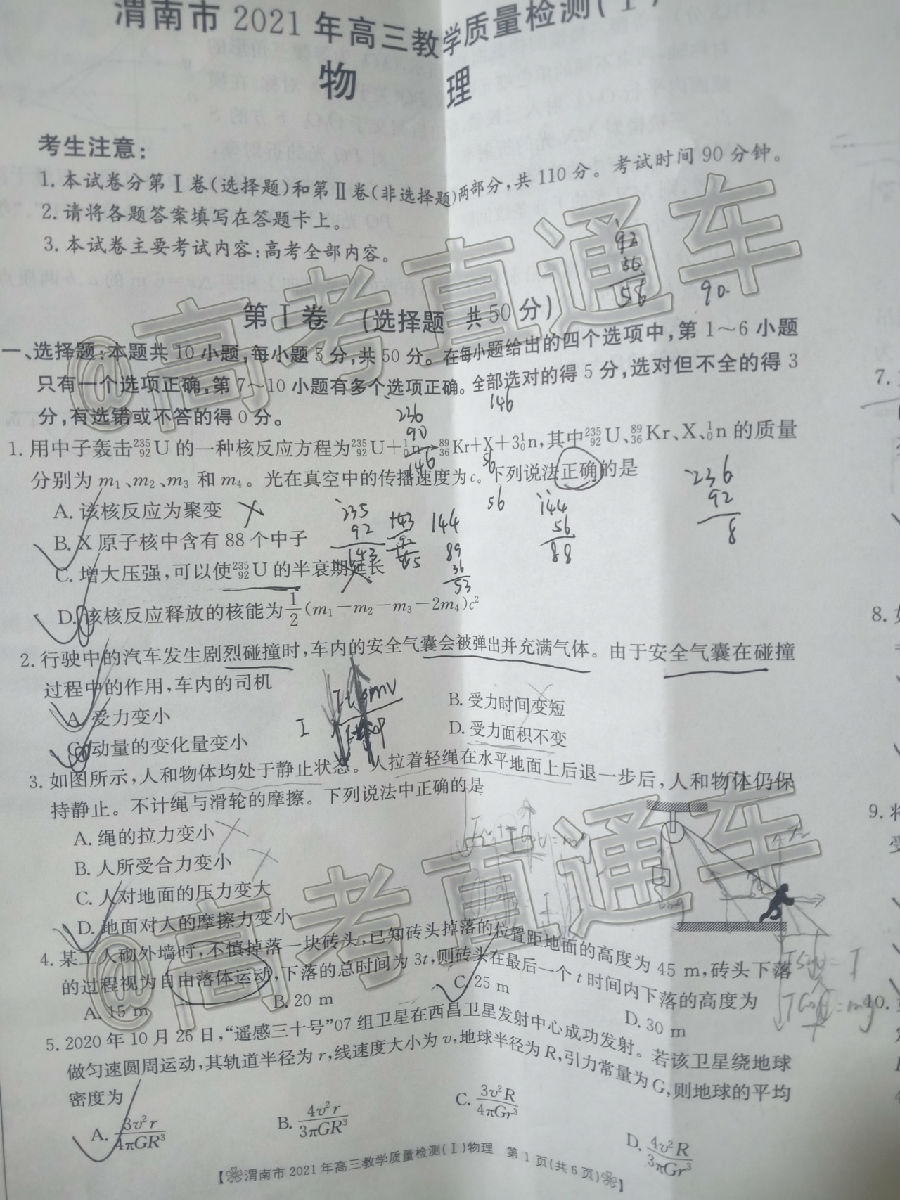 渭南市2021年高三教学质量检测(Ⅰ)
物 理
考生注意:
1.本试卷分第Ⅰ卷(选择题)和第Ⅱ卷(非选择题)两部分,共110分。考试时间90分钟。
2.请将各题答案填写在答题卡上。
3.本试卷主要考试内容:高考全部内容。
第Ⅰ卷 (选择题 共50分)
一、选择题:本题共10小题,每小题5分,共50分。在每小题给出的四个选项中,第1~6小题
只有一个选项正确,第7~10小题有多个选项正确。全部选对的得5分,选对但不全的得3
分,有选错或不答的得0分。
1.用中子轰击²³⁵₉₂U的一种核反应方程为²³⁵₉₂U+¹₀n→⁸⁹₃₆Kr+X+3¹₀n,其中²³⁵₉₂U、⁸⁹₃₆Kr、X、¹₀n的质量
分别为m₁、m₂、m₃和m₄。光在真空中的传播速度为c。下列说法正确的是
A.该核反应为聚变
B.X原子核中含有88个中子
C.增大压强,可以使²³⁵₉₂U的半衰期延长
D.该核反应释放的核能为½(m₁-m₂-m₃-2m₄)c²
2.行驶中的汽车发生剧烈碰撞时,车内的安全气囊会被弹出并充满气体。由于安全气囊在碰撞
过程中的作用,车内的司机
A.受力变小 B.受力时间变短
C.动量的变化量变小 D.受力面积不变
3.如图所示,人和物体均处于静止状态。人拉着轻绳在水平地面上后退一步后,人和物体仍保
持静止。不计绳与滑轮的摩擦。下列说法中正确的是
A.绳的拉力变小
B.人所受合力变小
C.人对地面的压力变大
D.地面对人的摩擦力变小
4.某工人砌外墙时,不慎掉落一块砖头,已知砖头掉落的位置距地面的高度为45 m,砖头下落
的过程视为自由落体运动,下落的总时间为3t,则砖头在最后一个t时间内下落的高度为
A.15 m B.20 m C.25 m D.30 m
5.2020年10月26日,“遥感三十号”07组卫星在西昌卫星发射中心成功发射。若该卫星绕地球
做匀速圆周运动,其轨道半径为r,线速度大小为v,地球半径为R,引力常量为G,则地球的平均
密度为
A.3v²r/4πGR³ B.4v²r/3πGR³ C.3v²R/4πGr³ D.4v²R/3πGr³
【渭南市2021年高三教学质量检测(Ⅰ)物理 第1页(共6页)】
@高考直通车
@高考直通车
7.
8.
9.
10.